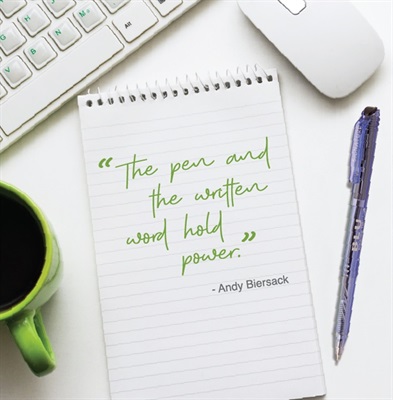 “The pen and
the written
word hold
power.”
- Andy Biersack